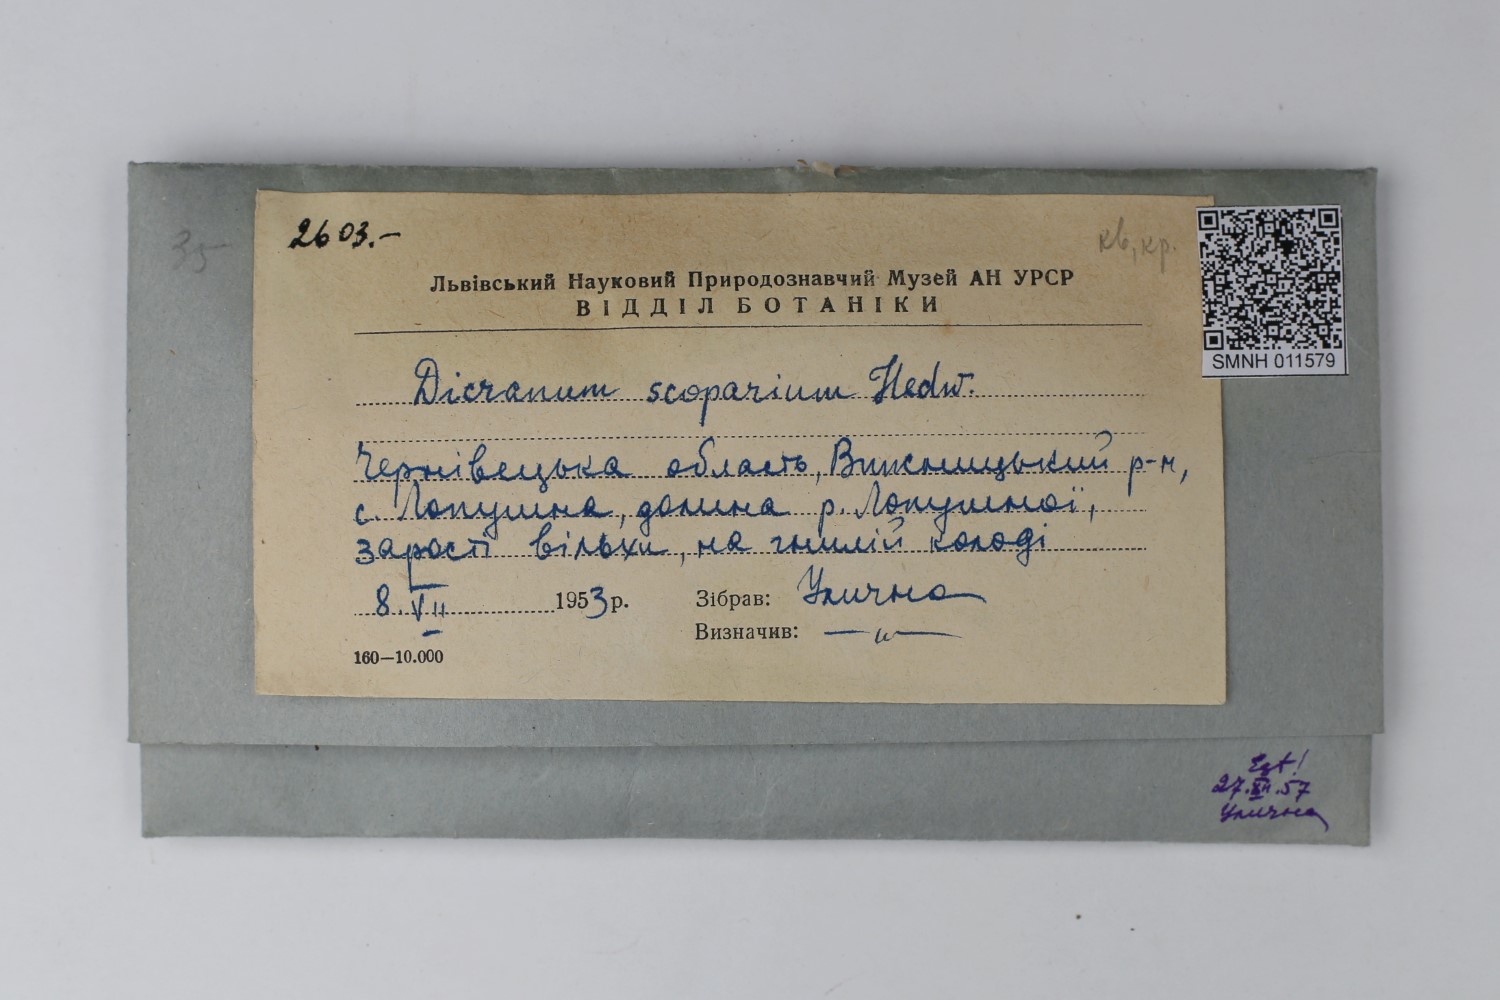 35
2603.-
кв, кр.
Львівський Науковий Природознавчий Музей АН УРСР
ВІДДІЛ БОТАНІКИ
SMNH 011579
Dicranum scoparium Hedw.
Чернівецька область, Вижницький р-н,
с. Лопушна, долина р. Лопушної,
зарості вільхи, на гнилій колоді
8.VII 1953р. Зібрав: Улична
Визначив: —"—
160—10.000
27.XII.57
Улична